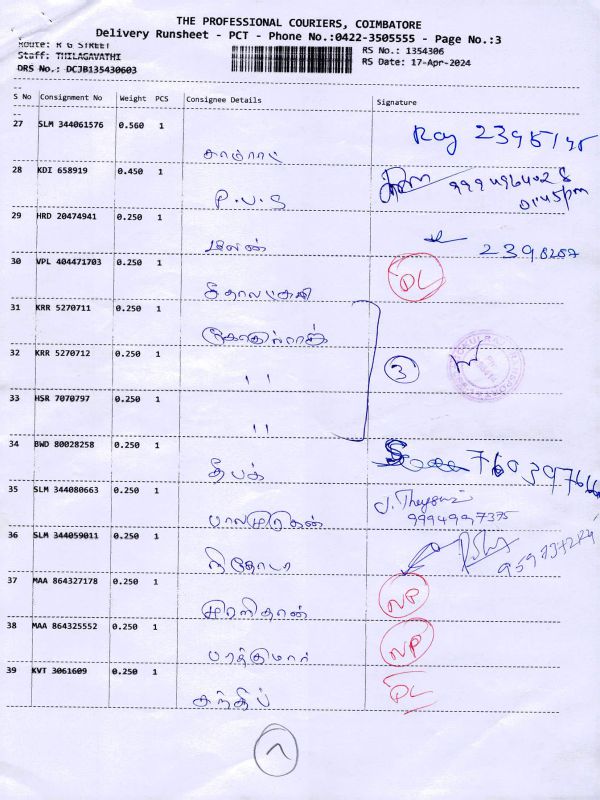 THE PROFESSIONAL COURIERS, COIMBATORE
Delivery Runsheet - PCT - Phone No.:0422-3505555 - Page No.:3
Route: R G STREET
RS No.: 1354306
Staff: THILAGAVATHI
RS Date: 17-Apr-2024
DRS No.: DCJB135430603
S No Consignment No Weight PCS Consignee Details Signature
27 SLM 344061576 0.560 1
Roy 2395145
28 KDI 658919 0.450 1
P.V.S
01:45pm
29 HRD 20474941 0.250 1
2398287
30 VPL 404471703 0.250 1 DL
31 KRR 5270711 0.250 1
கோகுல்ராஜ்
32 KRR 5270712 0.250 1
" 3
33 HSR 7070797 0.250 1
"
34 BWD 80028258 0.250 1
தீபக்
35 SLM 344080663 0.250 1
பாலமுருகன் 9994997375
36 SLM 344059011 0.250 1
37 MAA 864327178 0.250 1 NP
முரளிதரன்
38 MAA 864325552 0.250 1 NP
பரத்குமார்
39 KVT 3061609 0.250 1 DL
சந்தீப்